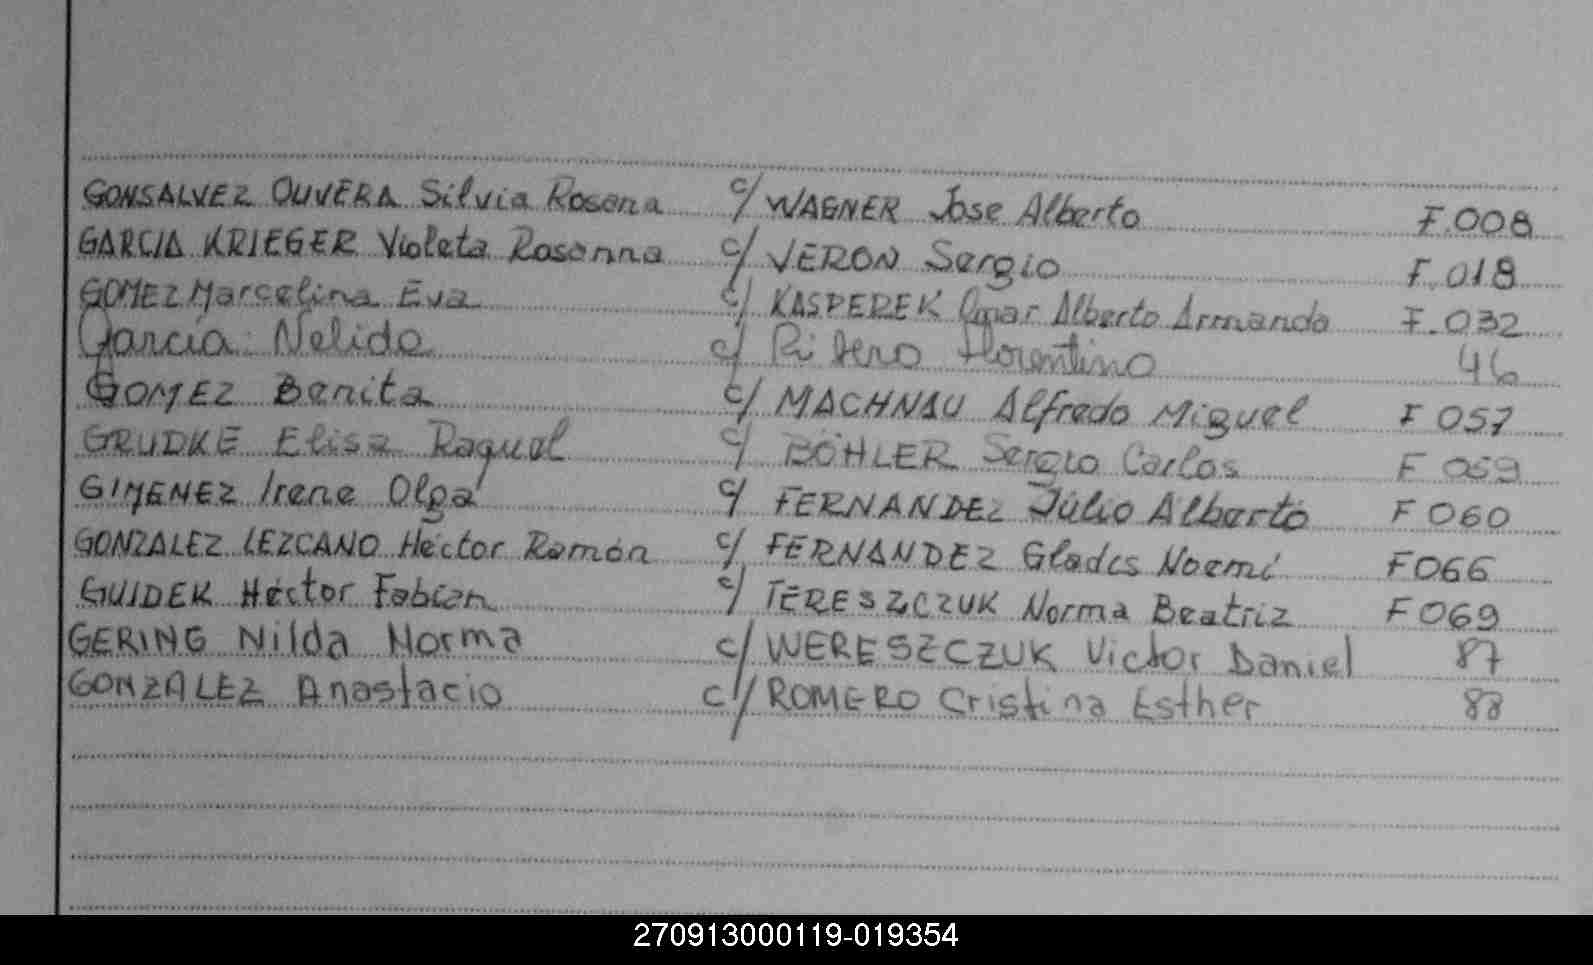 GONSALVEZ OLIVERA Silvia Rosana c/ WAGNER Jose Alberto F.008
GARCIA KRIEGER Violeta Rosanna c/ VERON Sergio F.018
GOMEZ Marcelina Eva c/ KASPEREK Omar Alberto Armando F.032
Garcia Nelida c/ Ribero Florentino 46
GOMEZ Benita c/ MACHNAU Alfredo Miguel F 057
GRUDKE Elisa Raquel c/ BÖHLER Sergio Carlos F 059
GIMENEZ Irene Olga c/ FERNANDEZ Júlio Alberto F 060
GONZALEZ LEZCANO Héctor Ramón c/ FERNANDEZ Gladis Noemí F 066
GUIDEK Héctor Fabian c/ TERESZCZUK Norma Beatriz F 069
GERING Nilda Norma c/ WERESZCZUK Victor Daniel 87
GONZALEZ Anastacio c/ ROMERO Cristina Esther 88
270913000119-019354